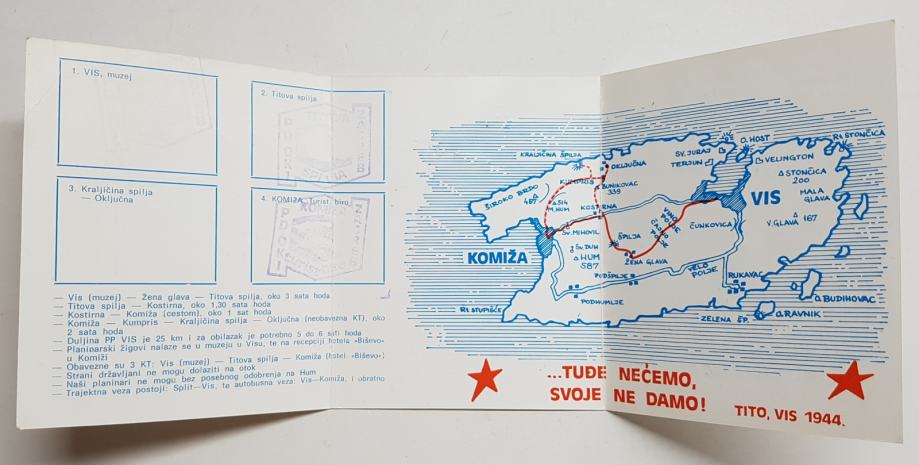 1. VIS, muzej
2. Titova spilja
3. Kraljičina spilja
— Oključna
4. KOMIŽA, Turist. biro
— Vis (muzej) — Žena glava — Titova spilja, oko 3 sata hoda
— Titova spilja — Kostirna, oko 1,30 sata hoda
— Kostirna — Komiža (cestom), oko 1 sat hoda
— Komiža — Kumpris — Kraljičina spilja — Oključna (neobavezna KT), oko
2 sata hoda
— Duljina PP VIS je 25 km i za obilazak je potrebno 5 do 6 sati hoda
— Planinarski žigovi nalaze se u muzeju u Visu, te na recepciji hotela »Biševo«
u Komiži
— Obavezne su 3 KT: Vis (muzej) — Titova spilja — Komiža (hotel »Biševo«)
— Strani državljani ne mogu dolaziti na otok
— Naši planinari ne mogu bez posebnog odobrenja na Hum
— Trajektna veza postoji: Split—Vis, te autobusna veza: Vis—Komiža, i obratno
KRALJIČINA ŠPILJA
OKLJUČNA
SV. JURAJ
TERJUN
O. HOST
Rt STONČICA
VELINGTON
STONČICA
200
MALA
GLAVA
V. GLAVA 167
VIS
KUMPRIS
BUNIKOVAC
339
ŠIROKO BRDO
M. HUM
KOSTIRNA
ČUNKOVICA
SV. MIHOVIL
ŠPILJA
KOMIŽA
SV. DUH
HUM
587
ŽENA GLAVA
PODŠPILJE
VELO
POLJE
RUKAVAC
PODHUMLJE
Rt STUPIŠĆE
ZELENA ŠP.
O. RAVNIK
O. BUDIHOVAC
...TUĐE NEĆEMO,
SVOJE NE DAMO!
TITO, VIS 1944.